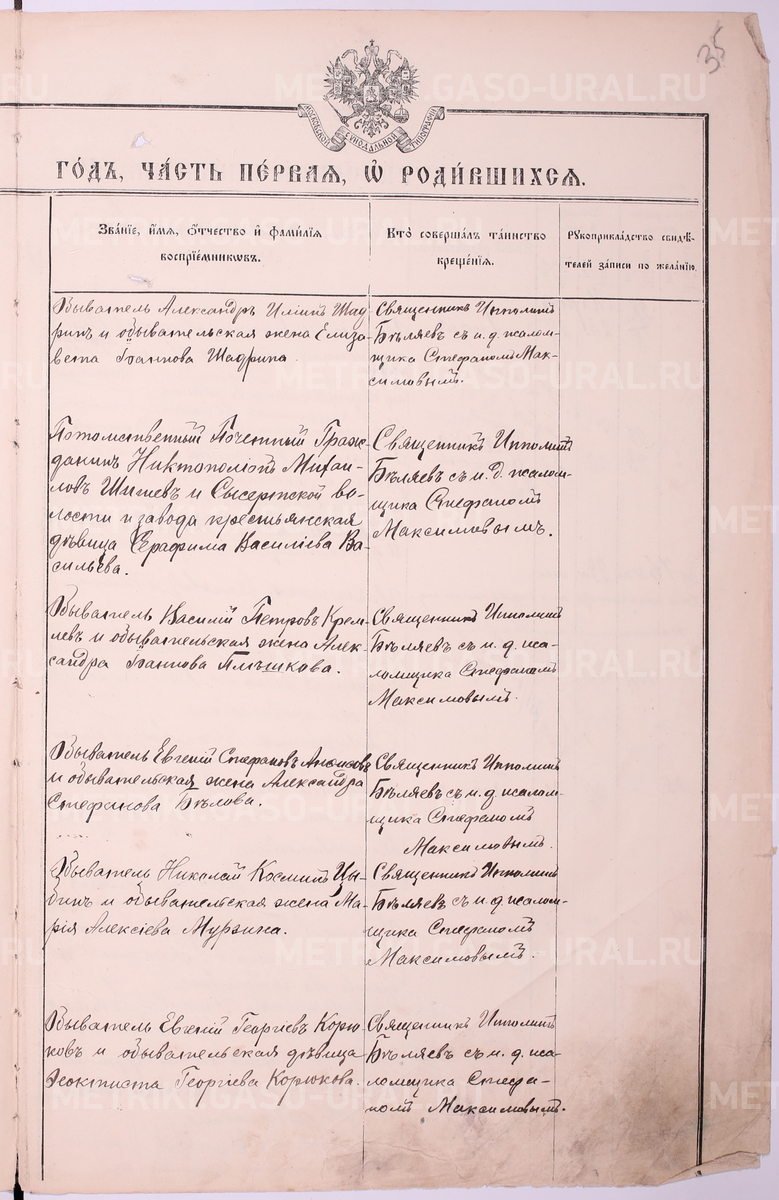 35
МОСКОВСКОЙ СѴНОДАЛЬНОЙ ТИПОГРАФІИ
ГО́ДЪ, ЧА́СТЬ ПЕ́РВАЯ, Ѡ҆ РОДИ́ВШИХСЯ.
Зва́ніе, и҆́мя, ѻ҆́тчество и҆ фами́лїя
воспрїе́мникѡвъ.
Кто̀ соверша́лъ та́инство
креще́нїя.
Рꙋкоприкла́дство свидѣ́-
телей за́писи по жела́нїю.
Обыватель Александръ Иліинъ Шад-
ринъ и обывательская жена Елиза-
вета Іоаннова Шадрина.
Священникъ Ипполитъ
Бѣляевъ съ и. д. псалом-
щика Стефаномъ Мак-
симовымъ.
Потомственный Почетный Граж-
данинъ Никтополіонъ Михаи-
ловъ Шишевъ и Сысертской во-
лости и завода крестьянская
дѣвица Серафима Василіева Ва-
сильева.
Священникъ Ипполитъ
Бѣляевъ съ и. д. псалом-
щика Стефаномъ
Максимовымъ.
Обыватель Василій Петровъ Крем-
левъ и обывательская жена Алек-
сандра Іоаннова Пльшкова.
Священникъ Ипполитъ
Бѣляевъ съ и. д. пса-
ломщика Стефаномъ
Максимовымъ.
Обыватель Евгеній Стефановъ
и обывательская жена Александра
Стефанова Бѣлова.
Священникъ Ипполитъ
Бѣляевъ съ и. д. псалом-
щика Стефаномъ
Максимовымъ.
Обыватель Николай Косминъ Цы-
бинъ и обывательская жена Ма-
рія Алексіева Мурзина.
Священникъ Ипполитъ
Бѣляевъ съ и. д. псалом-
щика Стефаномъ
Максимовымъ.
Обыватель Евгеній Георгіевъ Корю-
ковъ и обывательская дѣвица
Ѳеоктиста Георгіева Корюкова.
Священникъ Ипполитъ
Бѣляевъ съ и. д. пса-
ломщика Стефа-
номъ Максимовымъ.
METRIKI.GASO-URAL.RU